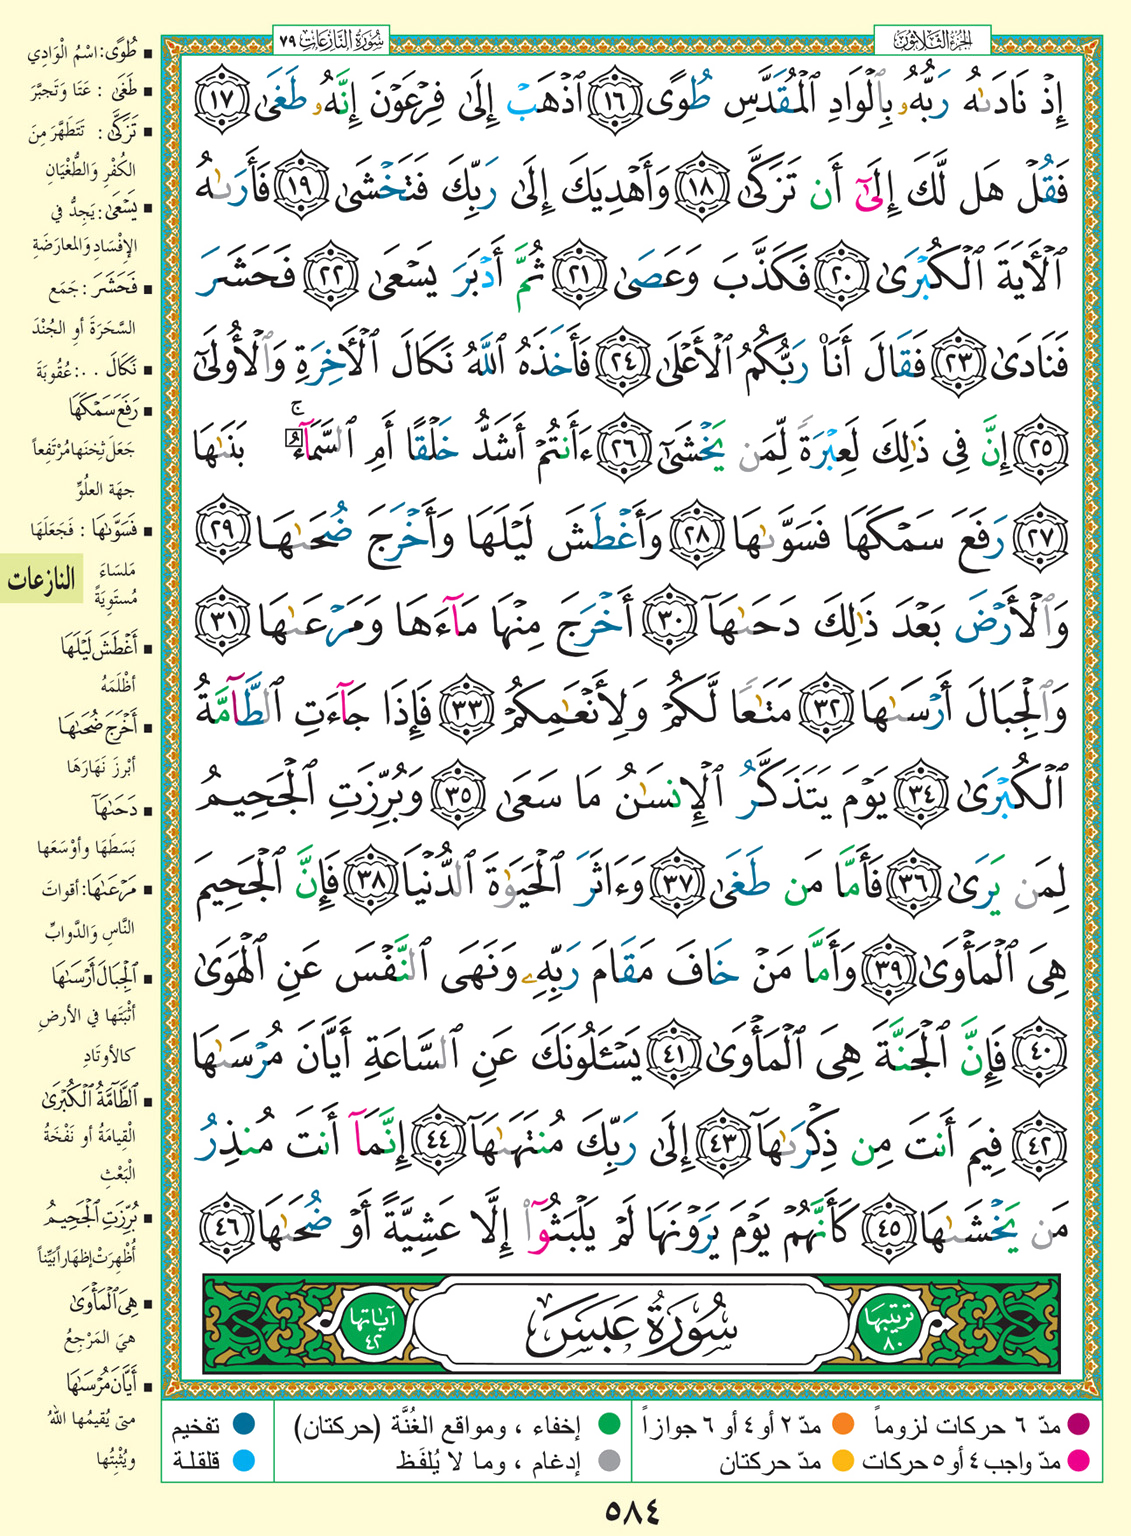 الجزء الثلاثون
سورة النازعات ٧٩
إِذْ نَادَىٰهُ رَبُّهُۥ بِٱلْوَادِ ٱلْمُقَدَّسِ طُوًى ١٦ ٱذْهَبْ إِلَىٰ فِرْعَوْنَ إِنَّهُۥ طَغَىٰ ١٧
فَقُلْ هَل لَّكَ إِلَىٰٓ أَن تَزَكَّىٰ ١٨ وَأَهْدِيَكَ إِلَىٰ رَبِّكَ فَتَخْشَىٰ ١٩ فَأَرَىٰهُ
ٱلْأٓيَةَ ٱلْكُبْرَىٰ ٢٠ فَكَذَّبَ وَعَصَىٰ ٢١ ثُمَّ أَدْبَرَ يَسْعَىٰ ٢٢ فَحَشَرَ
فَنَادَىٰ ٢٣ فَقَالَ أَنَا۠ رَبُّكُمُ ٱلْأَعْلَىٰ ٢٤ فَأَخَذَهُ ٱللَّهُ نَكَالَ ٱلْأٓخِرَةِ وَٱلْأُولَىٰٓ
٢٥ إِنَّ فِى ذَٰلِكَ لَعِبْرَةً لِّمَن يَخْشَىٰٓ ٢٦ ءَأَنتُمْ أَشَدُّ خَلْقًا أَمِ ٱلسَّمَآءُ ۚ بَنَىٰهَا
٢٧ رَفَعَ سَمْكَهَا فَسَوَّىٰهَا ٢٨ وَأَغْطَشَ لَيْلَهَا وَأَخْرَجَ ضُحَىٰهَا ٢٩
وَٱلْأَرْضَ بَعْدَ ذَٰلِكَ دَحَىٰهَآ ٣٠ أَخْرَجَ مِنْهَا مَآءَهَا وَمَرْعَىٰهَا ٣١
وَٱلْجِبَالَ أَرْسَىٰهَا ٣٢ مَتَـٰعًا لَّكُمْ وَلِأَنْعَـٰمِكُمْ ٣٣ فَإِذَا جَآءَتِ ٱلطَّآمَّةُ
ٱلْكُبْرَىٰ ٣٤ يَوْمَ يَتَذَكَّرُ ٱلْإِنسَـٰنُ مَا سَعَىٰ ٣٥ وَبُرِّزَتِ ٱلْجَحِيمُ
لِمَن يَرَىٰ ٣٦ فَأَمَّا مَن طَغَىٰ ٣٧ وَءَاثَرَ ٱلْحَيَوٰةَ ٱلدُّنْيَا ٣٨ فَإِنَّ ٱلْجَحِيمَ
هِىَ ٱلْمَأْوَىٰ ٣٩ وَأَمَّا مَنْ خَافَ مَقَامَ رَبِّهِۦ وَنَهَى ٱلنَّفْسَ عَنِ ٱلْهَوَىٰ
٤٠ فَإِنَّ ٱلْجَنَّةَ هِىَ ٱلْمَأْوَىٰ ٤١ يَسْـَٔلُونَكَ عَنِ ٱلسَّاعَةِ أَيَّانَ مُرْسَىٰهَا
٤٢ فِيمَ أَنتَ مِن ذِكْرَىٰهَآ ٤٣ إِلَىٰ رَبِّكَ مُنتَهَىٰهَآ ٤٤ إِنَّمَآ أَنتَ مُنذِرُ
مَن يَخْشَىٰهَا ٤٥ كَأَنَّهُمْ يَوْمَ يَرَوْنَهَا لَمْ يَلْبَثُوٓا۟ إِلَّا عَشِيَّةً أَوْ ضُحَىٰهَا ٤٦
ترتيبها ٨٠
سُورَةُ عَبَسَ
آياتها ٤٢
■ طُوًى: اسْمُ الْوَادِي
■ طَغَىٰ : عَتَا وَتَجَبَّرَ
■ تَزَكَّىٰ : تَتَطَهَّرَ مِنَ
الكُفْرِ وَالطُّغْيَانِ
■ يَسْعَىٰ: يَجِدُّ في
الإِفْسَادِ وَالمعارَضَةِ
■ فَحَشَرَ : جَمَع
السَّحَرَةَ أو الجُنْدَ
■ نَكَالَ . .: عُقُوبَةَ
■ رَفَعَ سَمْكَهَا
جَعَلَ ثِخَنَها مُرْتَفِعاً
جهَة العلُوِّ
■ فَسَوَّىٰهَا : فَجَعَلَهَا
مَلسَاءَ
مُستَوِيَةً
النازعات
■ أَغْطَشَ لَيْلَهَا
أظْلَمَهُ
■ أَخْرَجَ ضُحَىٰهَا
أبْرزَ نَهَارَهَا
■ دَحَىٰهَآ
بَسَطَهَا وأوْسَعَها
■ مَرْعَىٰهَا: أقواتَ
النَّاسِ وَالدَّوابِّ
■ ٱلْجِبَالَ أَرْسَىٰهَا
أثْبَتَها في الأرضِ
كالأوتَادِ
■ ٱلطَّآمَّةُ ٱلْكُبْرَىٰ
الْقِيامَةُ أو نَفْخَةُ
الْبَعْثِ
■ بُرِّزَتِ ٱلْجَحِيمُ
أُظْهِرَتْ إظهَاراً بَيِّناً
■ هِىَ ٱلْمَأْوَىٰ
هيَ المَرْجِعُ
■ أَيَّانَ مُرْسَىٰهَا
متى يُقيمُها اللهُ
ويُثْبِتُها
مدّ ٦ حركات لزوماً
مدّ ٢ أو ٤ أو ٦ جوازاً
إخفاء ، ومواقع الغُنَّة (حركتان)
تفخيم
مدّ واجب ٤ أو ٥ حركات
مدّ حركتان
إدغام ، وما لا يُلفَظ
قلقلة
٥٨٤